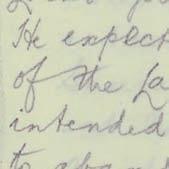 He expect
of the La
intended
to aban